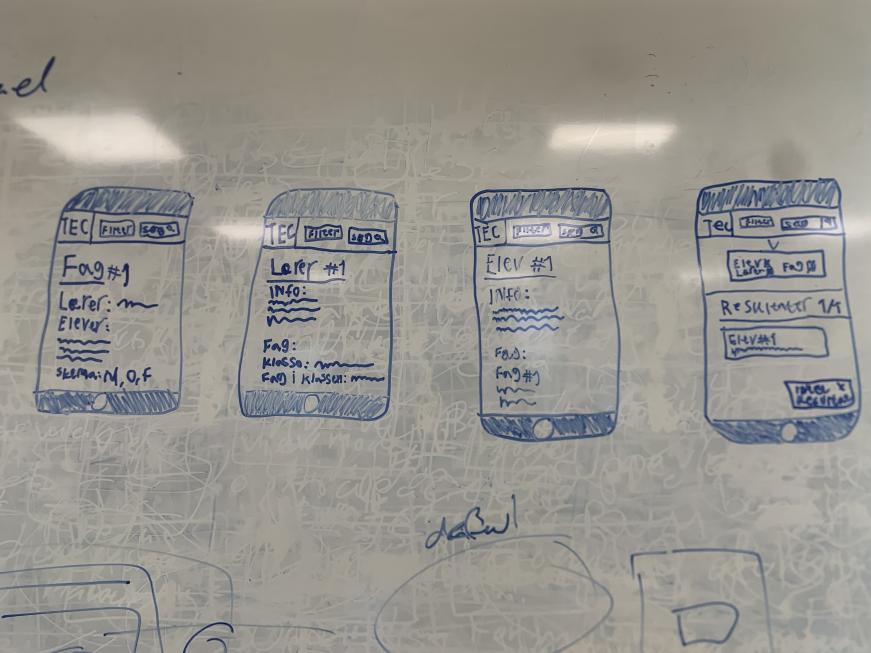 TEC Filter SØG
Fag #1
Lærer:
Elever:
Skema: M, O, F
TEC Filter SØG
Lærer #1
INFO:
Fag:
Klasse:
Fag i klassen:
TEC Filter SØG
Elev #1
INFO:
Fag:
Fag #1
TEC Filter SØG
Fag
Resultater 1/1
Elev #1